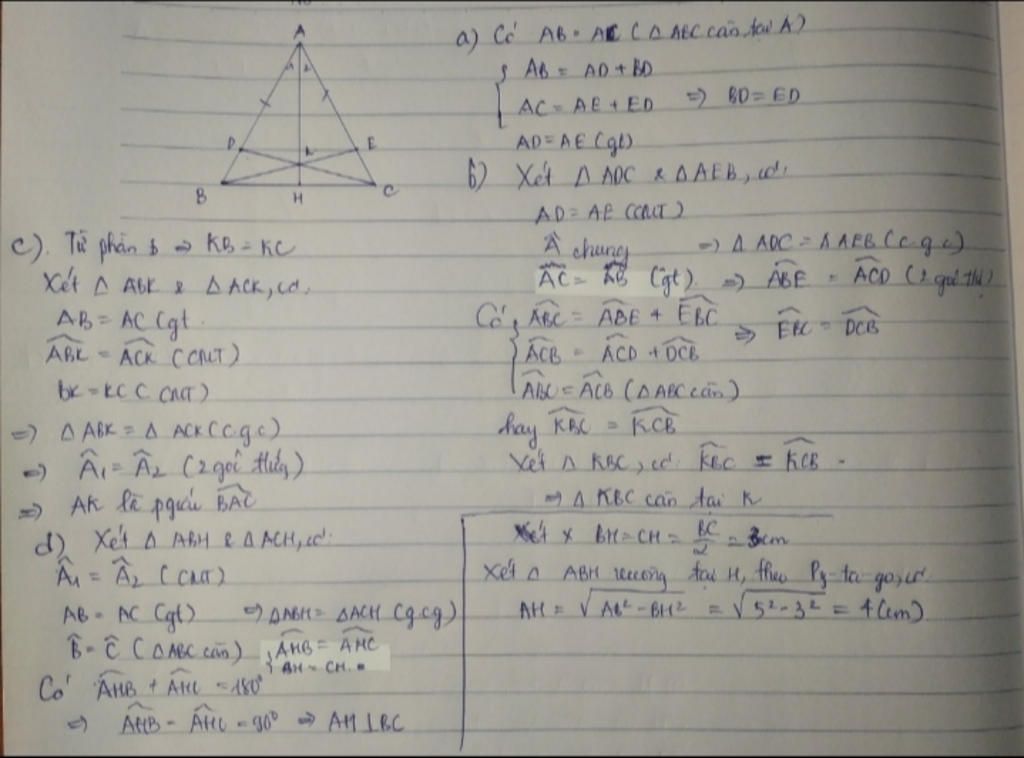 A
1 2
D
K
E
B
H
C
a) Có AB = AC (Δ ABC cân tại A)
AB = AD + BD
AC = AE + ED => BD = ED
AD = AE (gt)
b) Xét Δ ADC & Δ AEB, có:
AD = AE (CMT)
Â chung => Δ ADC = Δ AEB (c.g.c)
AC = AB (gt) => ABE = ACD (2 góc
Có ABC = ABE + EBC => EBC = DCB
ACB = ACD + DCB
ABC = ACB (Δ ABC cân)
hay KBC = KCB
Xét Δ KBC, có KBC = KCB
=> Δ KBC cân tại K
c). Từ phần b => KB = KC
Xét Δ ABK & Δ ACK, có:
AB = AC (gt
ABK = ACK (CMT)
BK = KC ( CMT)
=> Δ ABK = Δ ACK (c.g.c)
=> Â1 = Â2 (2 góc
=> AK là pgiác BAC
d) Xét Δ ABH & Δ ACH, có:
Â1 = Â2 (CMT)
AB = AC (gt) => ΔABH = ΔACH (g.c.g)
B̂ = Ĉ (Δ ABC cân) AHB = AHC
BH = CH.
Có AHB + AHC = 180°
=> AHB = AHC = 90° => AH ⊥ BC
BH = CH = BC/2 = 3cm
Xét Δ ABH vuông tại H, theo Py-ta-go, có
AH = √AB² - BH² = √5² - 3² = 4 (cm)